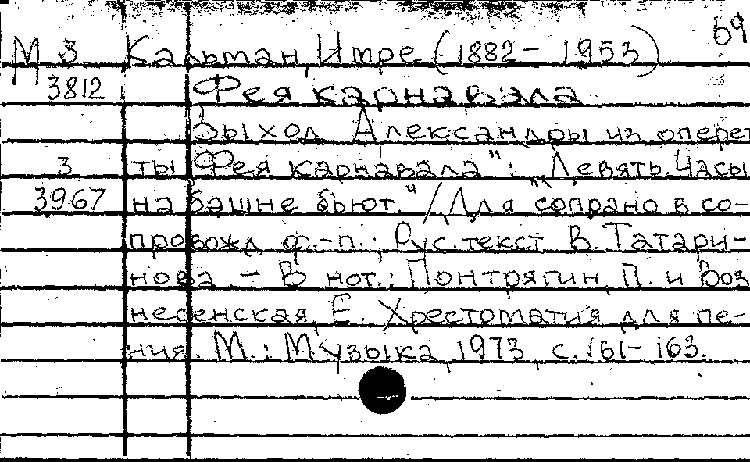 69
М 3 Кальман, Имре (1882 - 1953)
3812 Фея карнавала.
Выход Александры из оперет
3 ты "Фея карнавала": "Девять часы
3967 на башне бьют." / Для сопрано в со-
провожд. ф.-п.; Рус. текст В. Татари-
нова. - В нот.: Понтрягин, П. и Воз
несенская, Е. Хрестоматия для пе-
ния. М.: Музыка, 1973, с. 161-163.